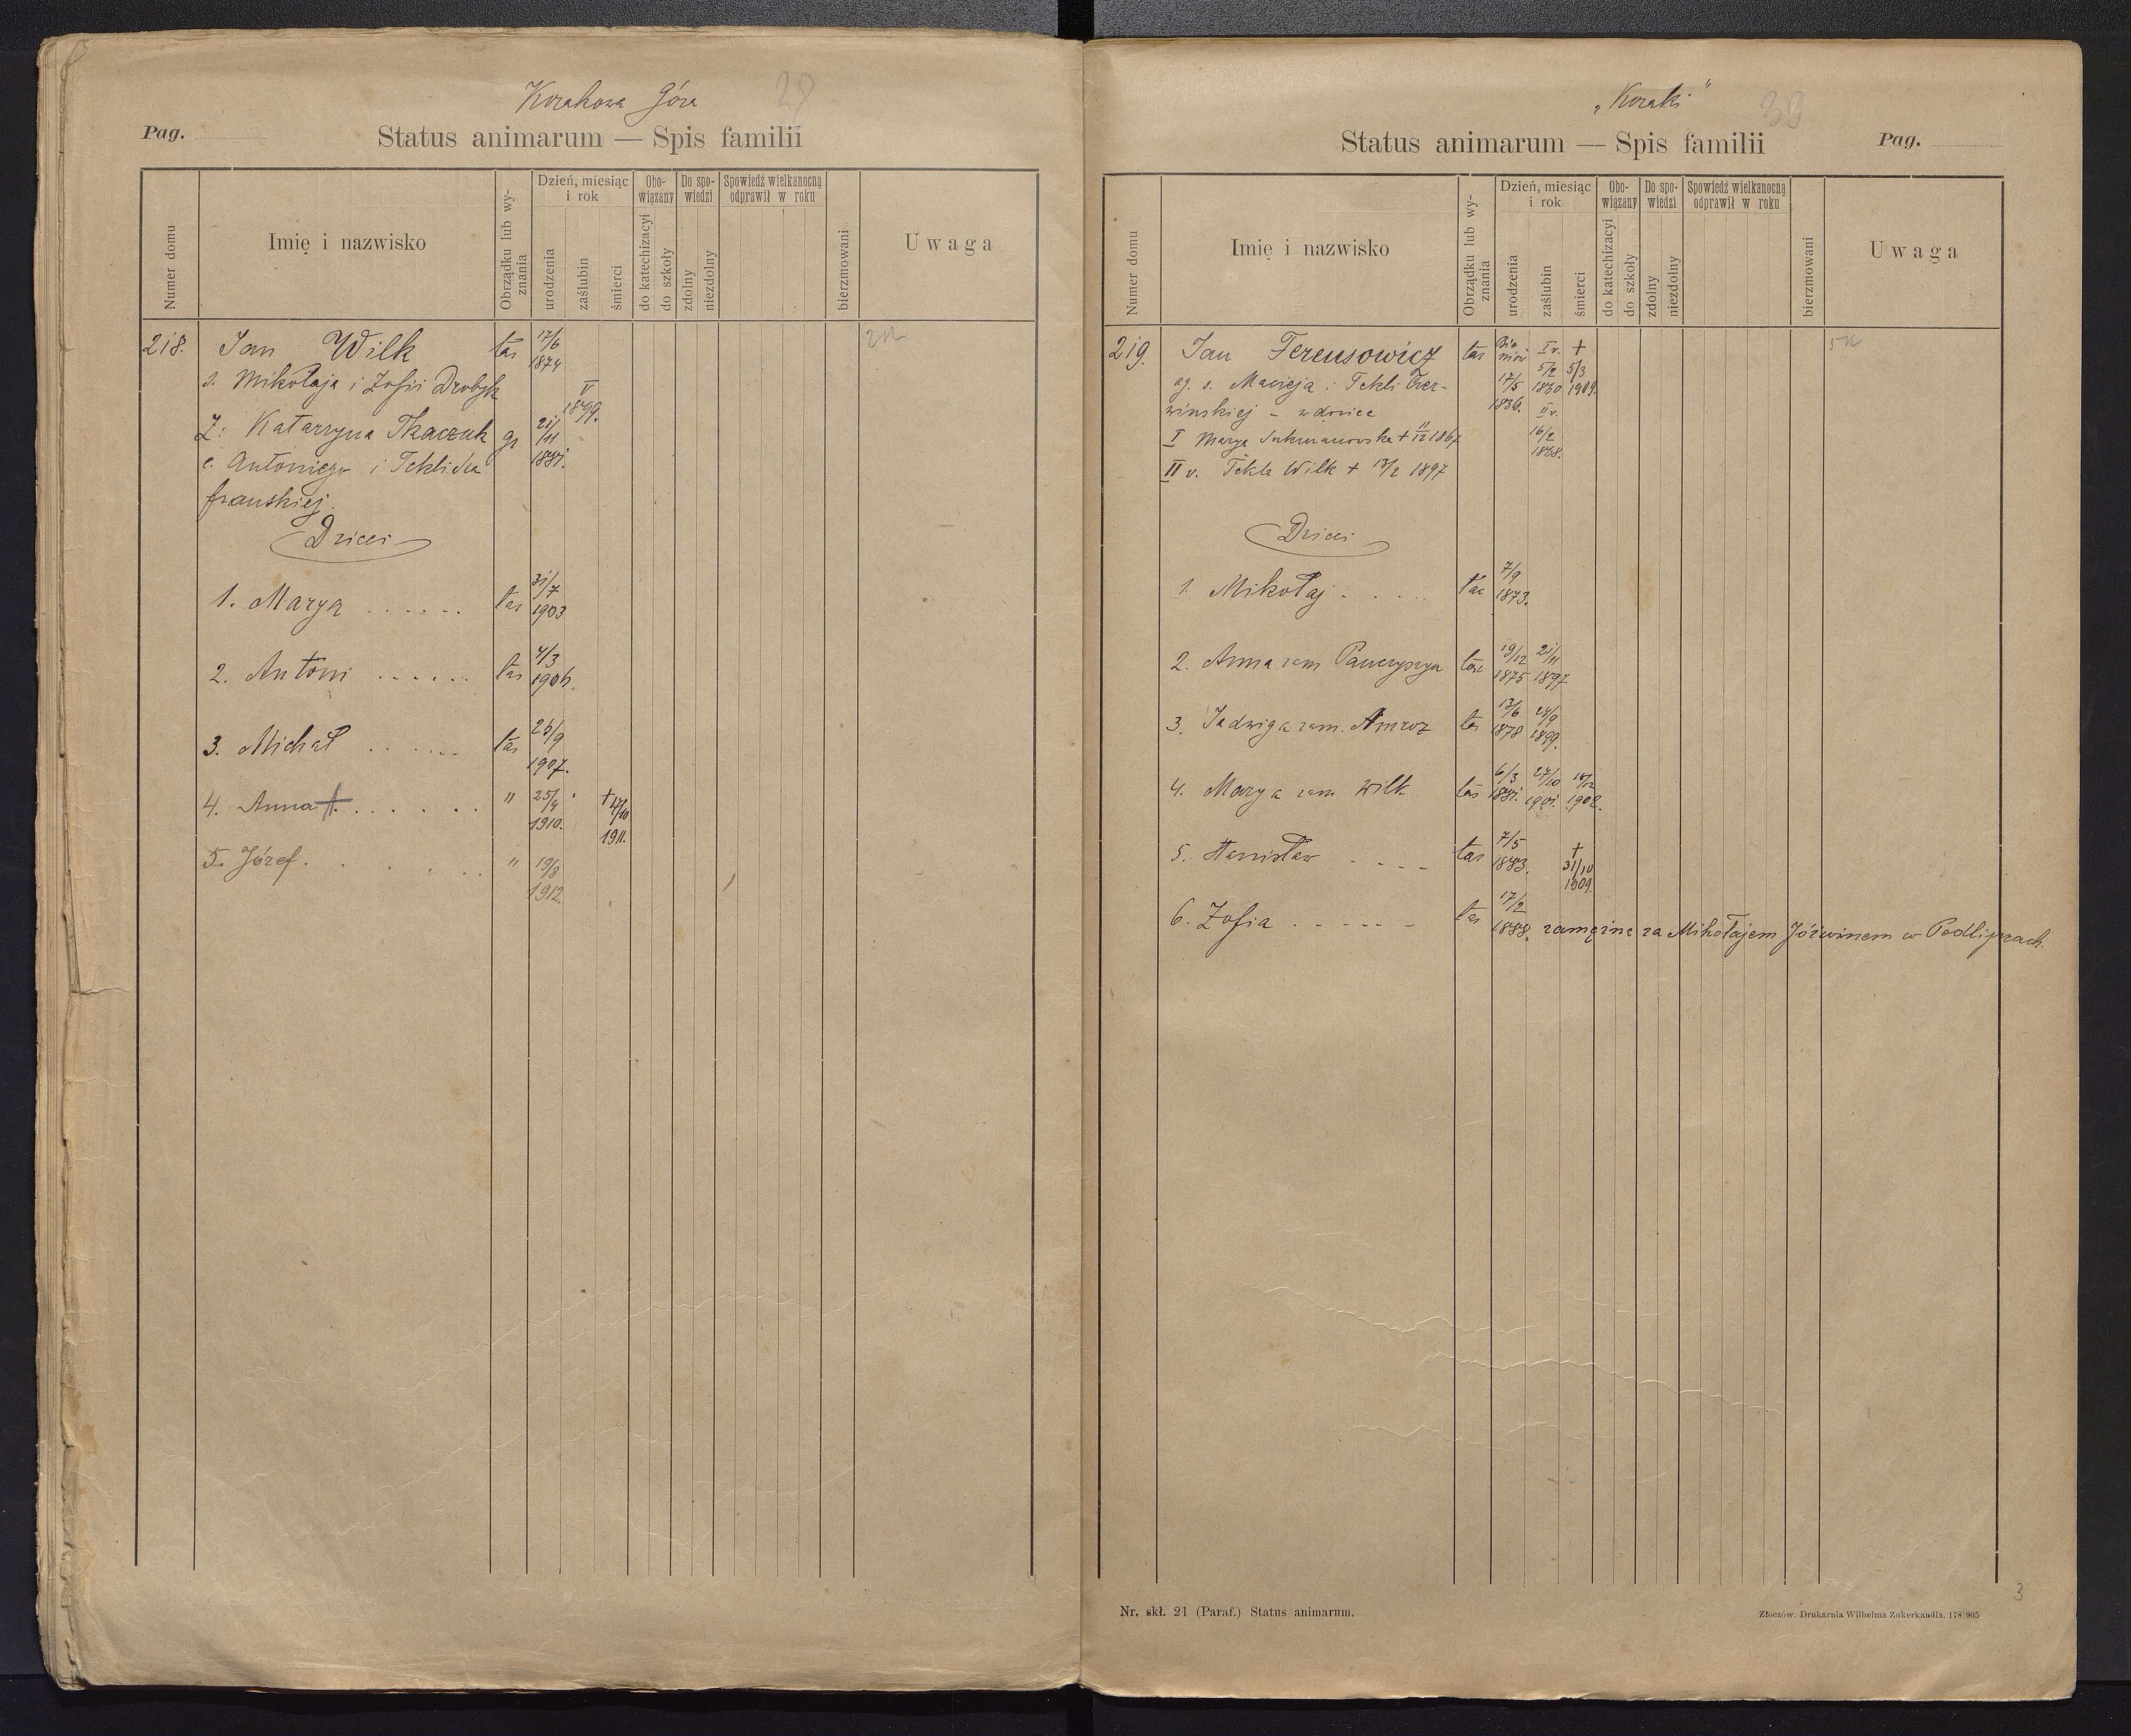 Korakowa Góra 29
Pag.
Status animarum — Spis familii
Numer domu
Imię i nazwisko
Obrządku lub wyznania
Dzień, miesiąc i rok
urodzenia
zaślubin
śmierci
Obowiązany
do katechizacyi
do szkoły
Do spowiedzi
zdolny
niezdolny
Spowiedź wielkanocną odprawił w roku
bierzmowani
Uwaga
218. Jan Wilk łac 17/6 1874
s. Mikołaja i Zofii Drobysk II 1899.
Ż: Katarzyna Tkaczuk gr 21/11 1881.
c. Antoniego i Tekli Sza
frańskiej.
Dzieci
1. Marya ...... łac 31/7 1903
2. Antoni ...... łac 4/3 1906.
3. Michał ...... łac 26/9 1907.
4. Anna + ...... " 25/4 1910. + 4/10 1911.
5. Józef ...... " 19/8 1912.
„Koraki" 39
Status animarum — Spis familii
Pag.
Numer domu
Imię i nazwisko
Obrządku lub wyznania
Dzień, miesiąc i rok
urodzenia
zaślubin
śmierci
Obowiązany
do katechizacyi
do szkoły
Do spowiedzi
zdolny
niezdolny
Spowiedź wielkanocną odprawił w roku
bierzmowani
Uwaga
219. Jan Ferensowicz łac 17/5 1836. I v. 5/2 1860 + 5/3 1909.
ag. s. Macieja i Tekli Czer-
wińskiej – wdowiec II v. 16/2 1868.
I Marya Sukmanowska + 11/12 1867
II v. Tekla Wilk + 13/2 1897
Dzieci
1. Mikołaj ..... łac 7/9 1873.
2. Anna zam Pawczyszyn łac 19/12 1875 21/11 1897
3. Jadwiga zam. Amroz łac 13/6 1878 28/9 1899.
4. Marya zam Wilk łac 6/3 1881. 27/10 1901. 18/12 1902.
5. Stanisław .... łac 7/5 1883. + 31/10 1909.
6. Zofia ..... łac 17/2 1888. zamężna za Mikołajem Józwinem w Podlipcach.
Nr. skł. 21 (Paraf.) Status animarum.
Złoczów. Drukarnia Wilhelma Zukerkandla. 178|905
3